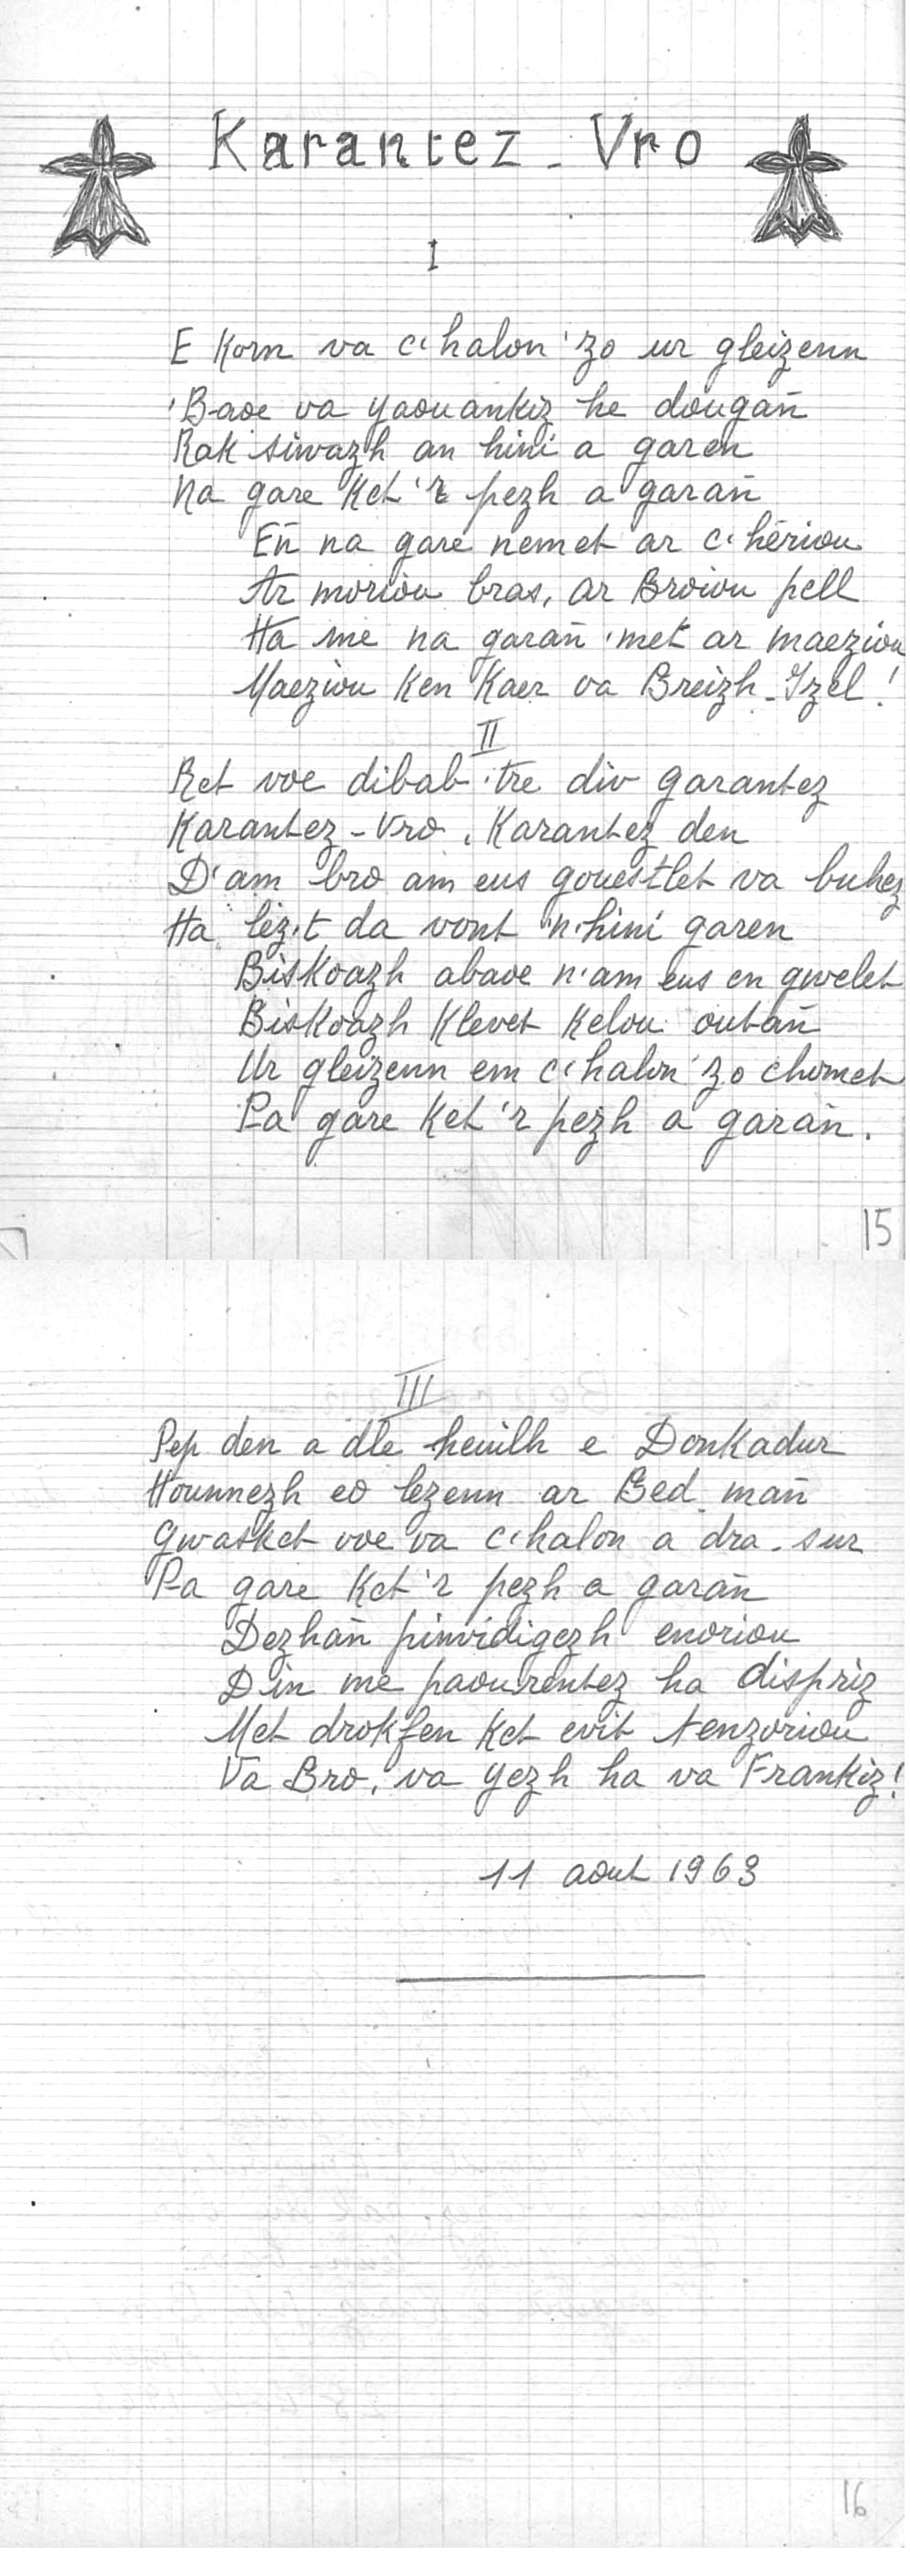 Karantez-Vro
I
E Korn va c'halon 'zo ur gleizenn
'Baoe va yaouankiz he dougañ
Rak siwazh an hini a garen
Na gare Ket 'r pezh a garañ
Eñ na gare nemet ar c'hériou
Ar moriou bras, ar Broiou pell
Ha me na garañ 'met ar maeziou
Maeziou Ken Kaer va Breizh-Izel !
II
Ret voe dibab 'tre div garantez
Karantez-Vro, Karantez den
D'am bro am eus gouestlet va buhez
Ha lez't da vont 'n'hini garen
Biskoazh abaoe n'am eus en gwelet
Biskoazh Klevet Kelou outañ
Ur gleizenn em c'halon 'zo chomet
Pa gare Ket 'r pezh a garañ.
15
III
Pep den a dle heuilh e Donkadur
Hounnezh eo lezenn ar Bed-mañ
Gwasket voe va c'halon a dra-sur
Pa gare Ket 'r pezh a garañ
Dezhañ pinvidigezh enoriou
Din me paourentez ha dispriz
Met drokfen Ket evit tenzoriou
Va Bro, va Yezh ha va Frankiz !
11 aout 1963
16